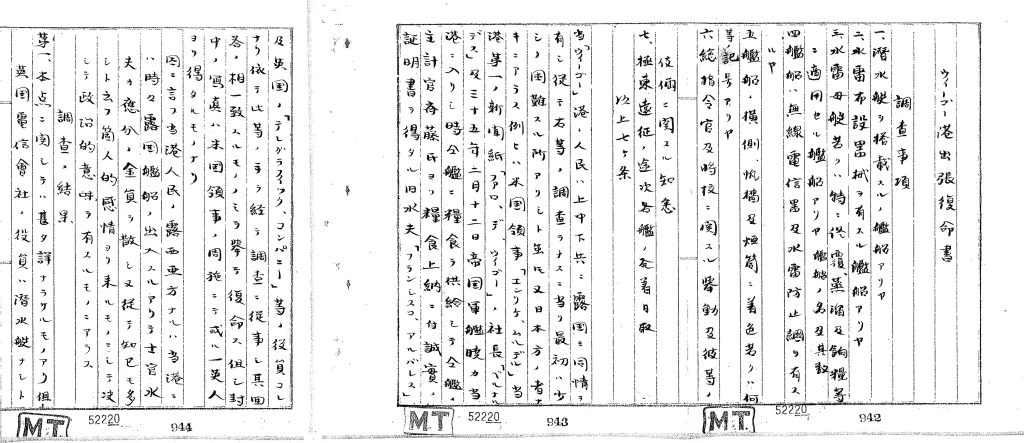 ウィーゴー港出張復命書
調査事項
一、潜水艇ヲ搭載スル艦船アリヤ
二、水雷布設器械ヲ有スル艦船アリヤ
三、水雷母艇若クハ特ニ修覆、蒸溜及餉糧等
ニ適用セル艦船アリヤ艦船ノ名及其数
四、艦船ハ無線電信器及水雷防止網ヲ有ス
ルヤ
五、艦船ノ横側、帆檣及烟筒ニ着色若クハ何
等記号アリヤ
六、総指令官及時校ニ関スル挙動及彼等ノ
伎倆ニ関スル知悉
七、極東遠征ノ途次各艦ノ発着日取
以上七ケ条
当「ウィーゴー」港ノ人民ハ上中下共ニ露国ニ同情ヲ
有シ従テ右等ノ調査ヲナスニ当リ最初ハ少
シク困難スル所アリシト雖モ又日本方ノ者ナ
キニアラス例ヒハ米国領事「エンリケ、ムルデル」当
港第一ノ新聞紙「ファロ、デ、ウィゴー」ノ社長「ベルナル
デス」及三十五年二月十二日帝国軍艦暁カ当
港ニ入リシ時全艦ニ糧食ヲ供給シテ全艦ノ
主計官斉藤氏ヨリ糧食上納ニ付誠実ノ
証明書ヲ得タル旧水夫「フランシスコ、アルバレス」
及英国ノ「テレグラフイック、コンパニー」等ノ役員コレ
ナリ依テ此等ノ手ヲ経テ調査ニ従事シ其回
答ノ相一致スルモノノミヲ挙テ復命ス但シ封
中ノ写真ハ米国領事ノ周旋ニテ或ル一英人
ヨリ得タルモノナリ
因ニ言フ当港人民ノ露西亜方ナルハ当港ニ
ハ時々露国艦船ノ出入スルアリテ士官水
夫カ応分ノ金員ヲ散シ又従テ知己モ多
シト云フ箇人的感情ヨリ来ルモノニシテ決
シテ政治的意味ヲ有スルモノニアラス
調査ノ結果
第一、本点ニ関シテハ甚タ詳ナラサルモノアリ但
英国電信会社ノ役員ハ潜水艇ナシト
M.T. 52220 942
M.T. 52220 943
M.T. 52220 944